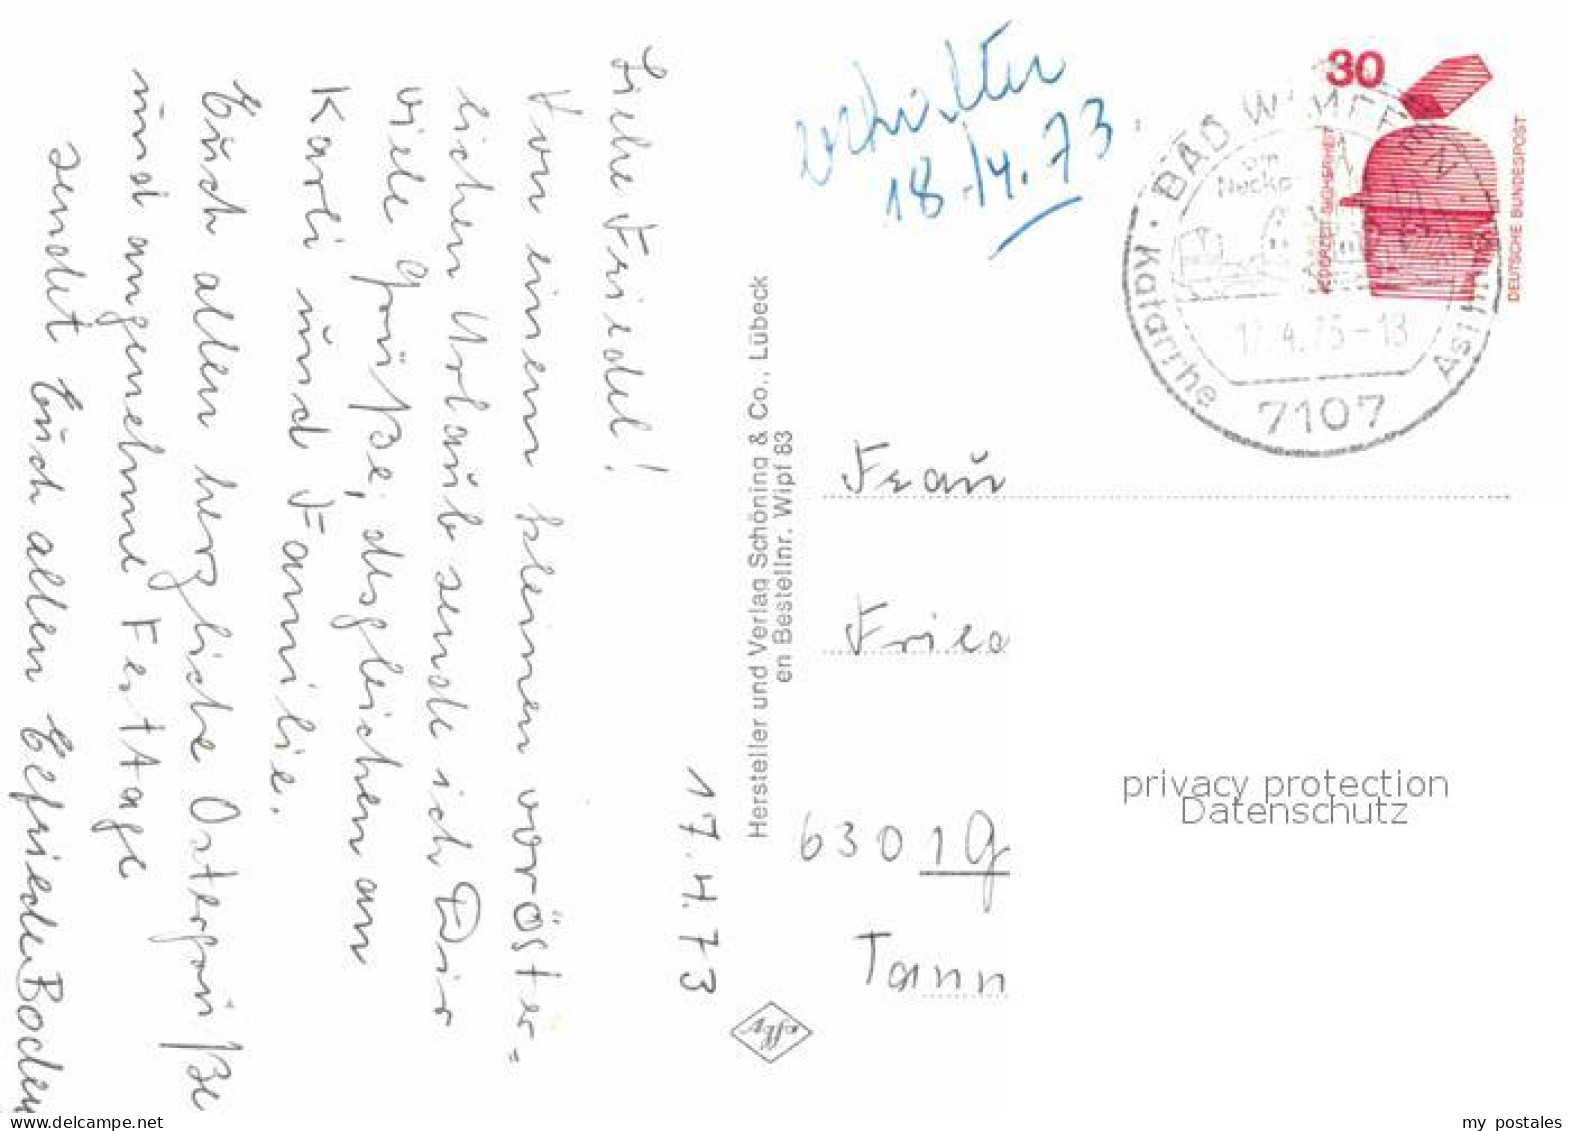 17.4.73
Liebe Friedel!
Von einem kleinen voröster=
lichen Urlaub sende ich Dir
viele Grüße, desgleichen an
Karli und Familie.
Euch allen herzliche Ostergrüße
und angenehme Festtage
sendet Euch allen Elfriede Boden
Hersteller und Verlag Schöning & Co., Lübeck
en Bestellnr. Wipf 83
erhalten
18.4.73
30
JEDERZEIT SICHERHEIT
DEUTSCHE BUNDESPOST
BAD WIMPFEN
Katarrhe
Asthma
17.4.73-18
7107
Frau
Fried
6301 G
Tann
privacy protection
Datenschutz
www.ansichtskarten-center.de
my postales